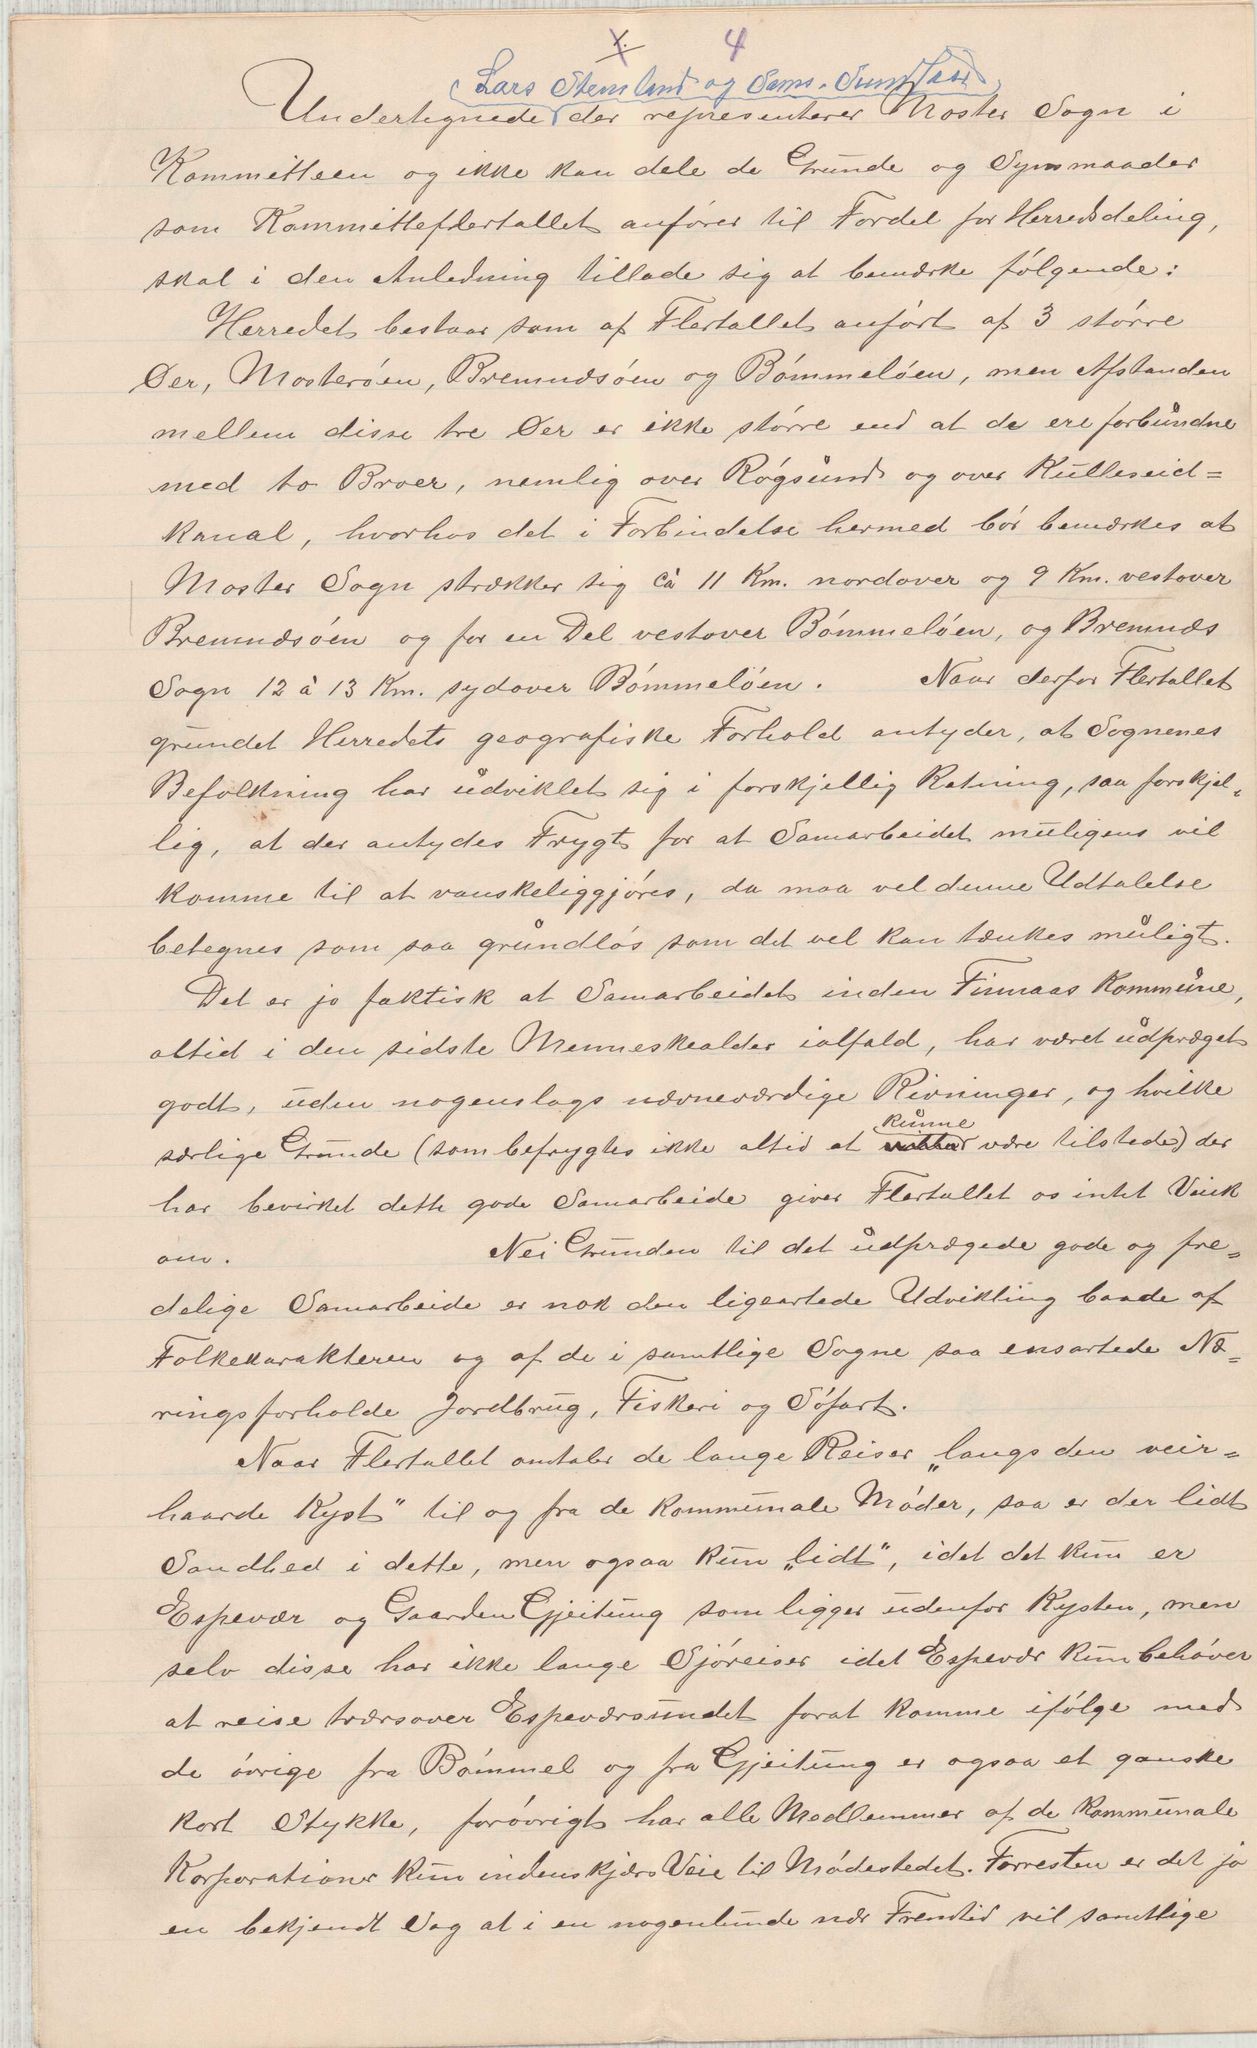 4
(Lars Stemland og Sams. Sund
Undertegnede der representerer Moster Sogn i
Kommitteen og ikke kan dele de Grunde og Synsmaader
som Kommitteflertallet anfører til Fordel for Herredsdeling,
skal i den Anledning tillade sig at bemærke følgende:
Herredet bestaar som af Flertallet anført af 3 større
Øer, Mosterøen, Bremnæsøen og Bømmeløen, men Afstanden
mellem disse tre Øer er ikke større end at de ere forbundne
med to Broer, nemlig over Røgsund og over Kulleseid=
kanal, hvorhos det i Forbindelse hermed bør bemærkes at
Moster Sogn strækker sig ca 11 Km. nordover og 9 Km. vestover
Bremnæsøen og for en Del vestover Bømmeløen, og Bremnæs
Sogn 12 à 13 Km. sydover Bømmeløen. Naar derfor Flertallet
grundet Herredets geografiske Forhold antyder, at Sognenes
Befolkning har udviklet sig i forskjellig Retning, saa forskjel=
lig, at der antydes Frygt for at Samarbeidet muligens vil
komme til at vanskeliggjøres, da maa vel denne Udtalelse
betegnes som saa grundløs som det vel kan tænkes muligt.
Det er jo faktisk at Samarbeidet inden Finnaas Kommune,
altid i den sidste Menneskealder ialfald, har været udpræget
godt, uden nogenslags nævneværdige Rivninger, og hvilke
kunne
særlige Grunde (som befrygtes ikke altid at være tilstede) der
har bevirket dette gode Samarbeide giver Flertallet os intet Vink
om. Nei Grunden til det udprægede gode og fre=
delige Samarbeide er nok den ligeartede Udvikling baade af
Folkekarakteren og af de i samtlige Sogne saa ensartede Næ=
ringsforholde Jordbrug, Fiskeri og Søfart.
Naar Flertallet omtaler de lange Reiser „langs den veir=
haarde Kyst" til og fra de kommunale Møder, saa er der lidt
Sandhed i dette, men ogsaa kun „lidt", idet det kun er
Espevær og Gaarden Gjeitung som ligger udenfor Kysten, men
selv disse har ikke lange Sjøreiser idet Espevær kun behøver
at reise tværsover Espeværsundet forat komme ifølge med
de øvrige fra Bømmel og fra Gjeitung er ogsaa et ganske
kort Stykke, forøvrigt har alle Medlemmer af de kommunale
Korporationer kun indenskjærs Veie til Mødestedet. Forresten er det jo
en bekjendt Sag at i en nogenlunde nær Fremtid vil samtlige